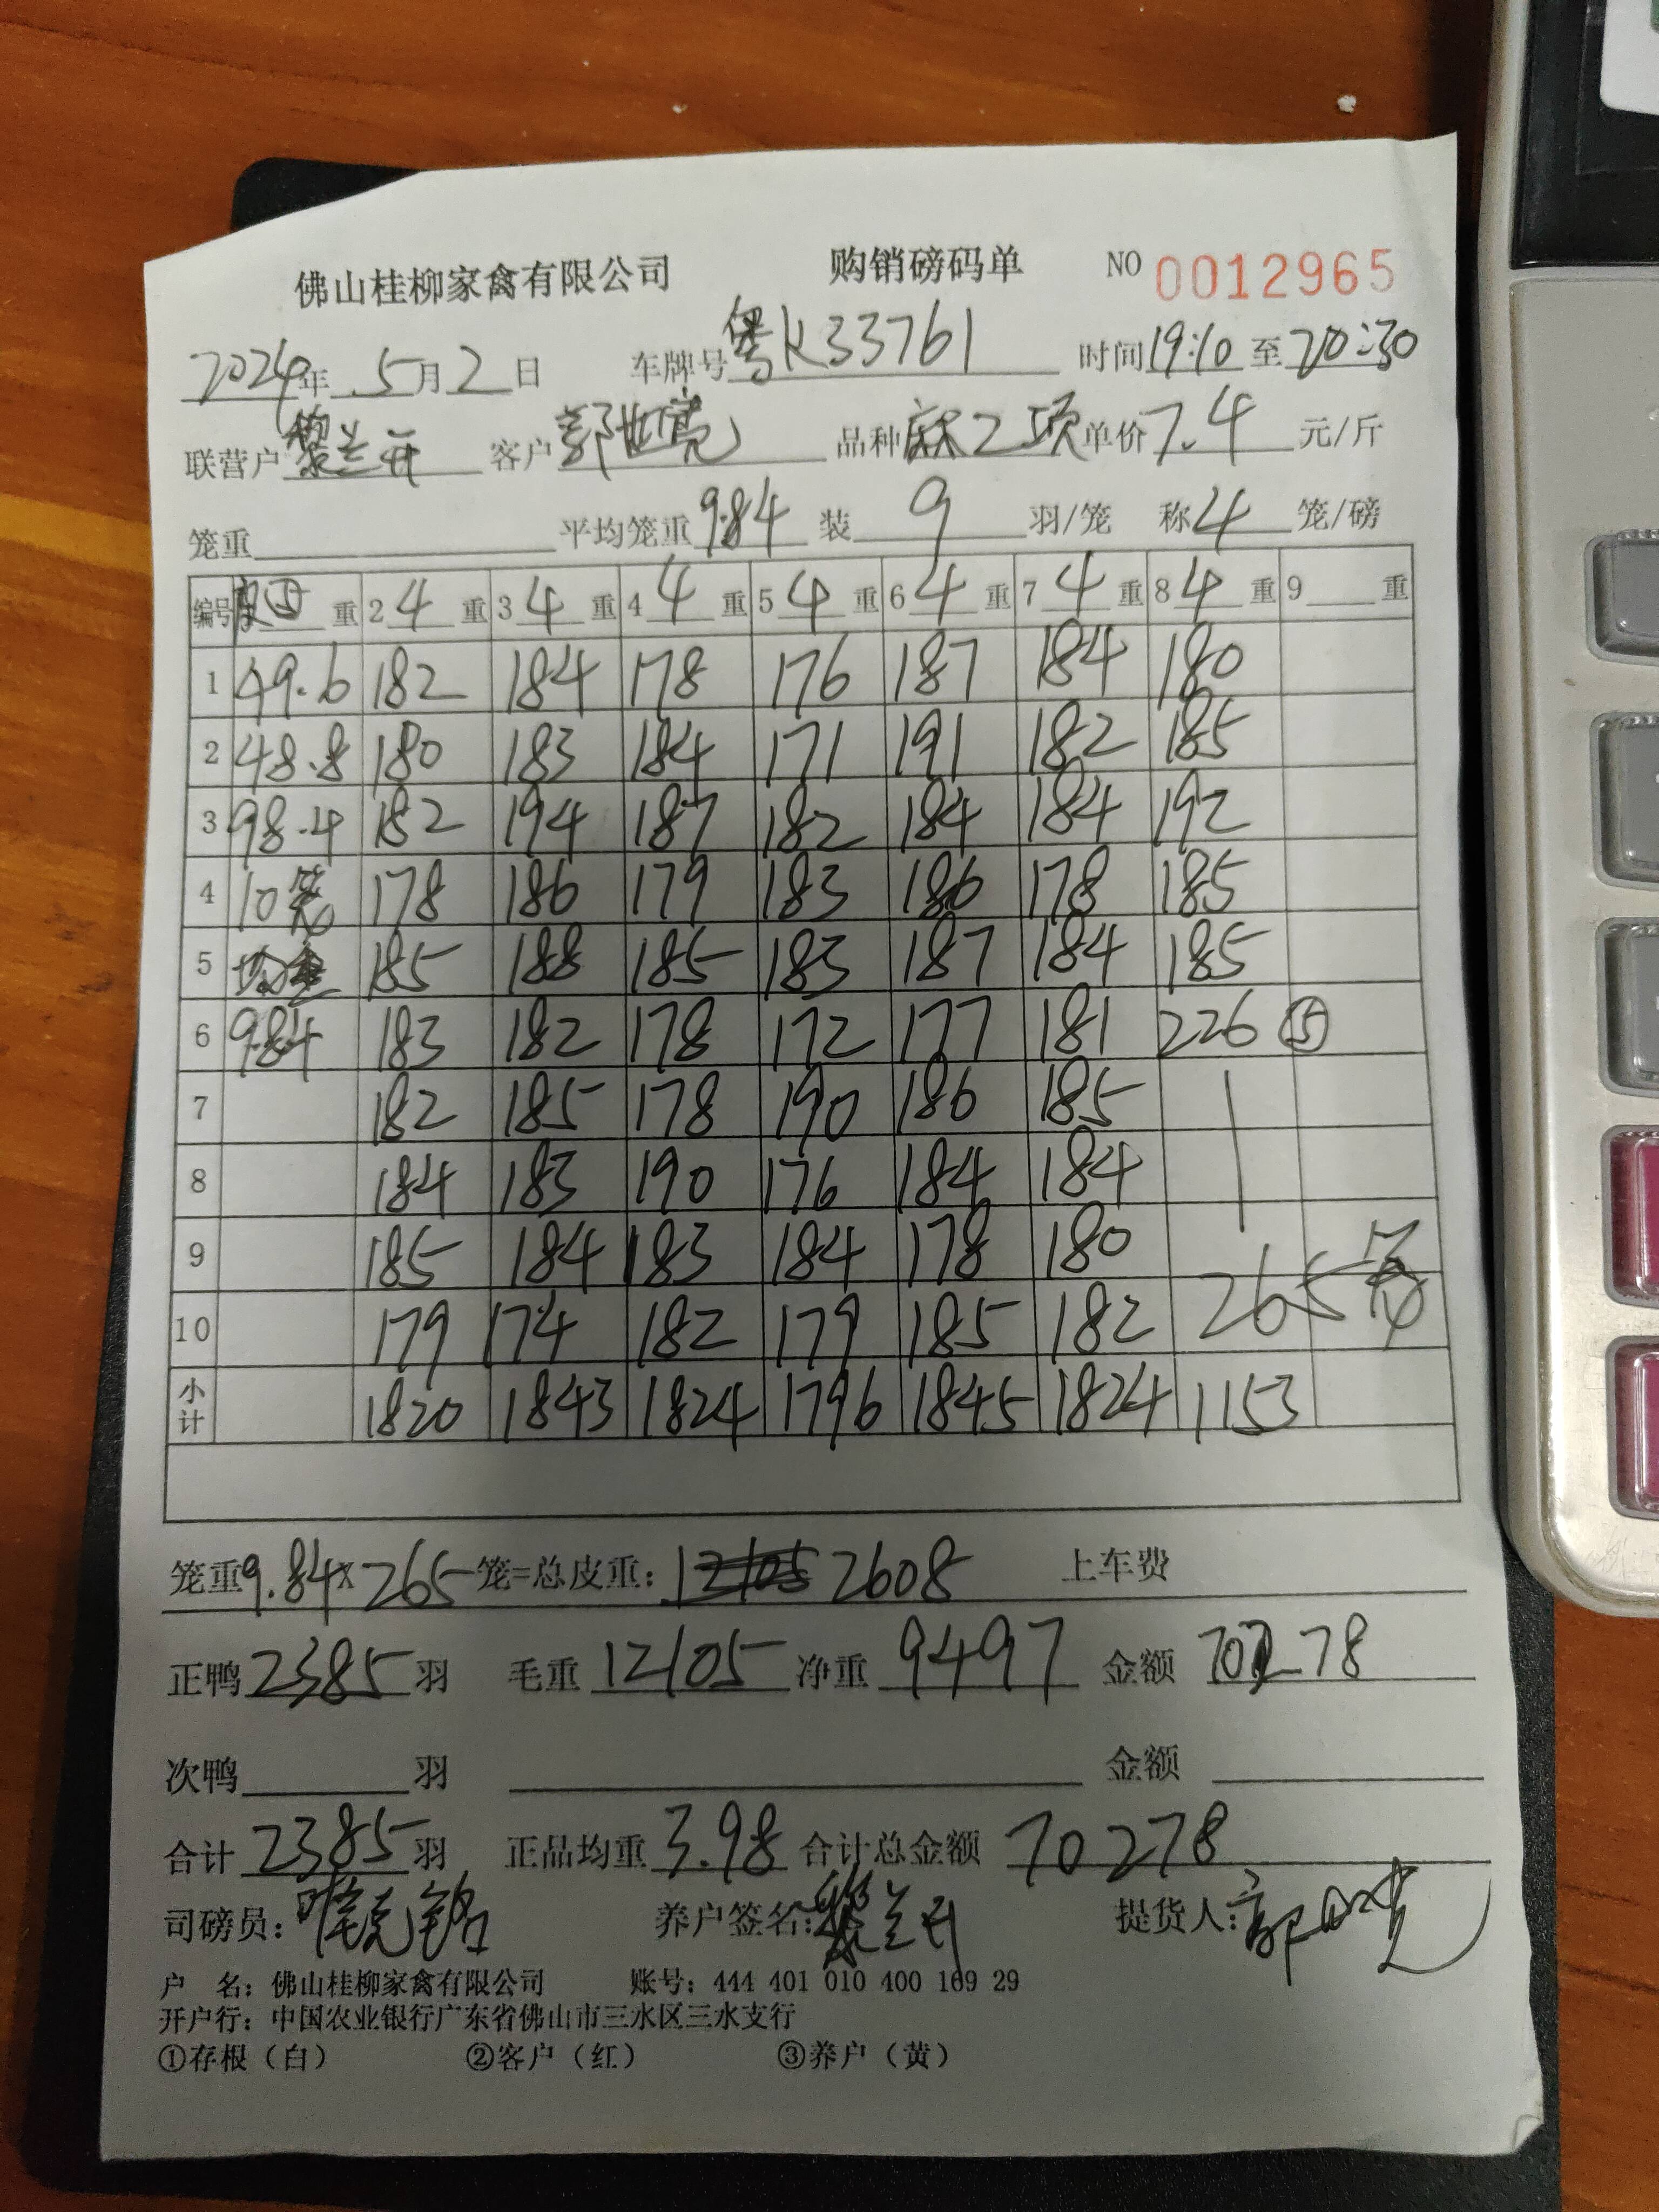 佛山桂柳家禽有限公司 购销磅码单 NO 0012965
2024年 5月2日 车牌号粤K33761 时间19:10至20:30
联营户黎兰开 客户郭世亮 品种麻2项 单价7.4元/斤
笼重 平均笼重9.84 装9羽/笼 称4笼/磅
编号 皮⑤重 2 4重 3 4重 4 4重 5 4重 6 4重 7 4重 8 4重 9 重
1 49.6 182 184 178 176 187 184 180
2 48.8 180 183 184 171 191 182 185
3 98.4 182 194 187 182 184 184 192
4 10笼 178 186 179 183 186 178 185
5 均重 185 188 185 183 187 184 185
6 9.84 183 182 178 172 177 181 226 ⑤
7 182 185 178 190 186 185
8 184 183 190 176 184 184
9 185 184 183 184 178 180
10 179 174 182 179 185 182 265笼
小计 1820 1843 1824 1796 1845 1824 1153
笼重9.84×265笼=总皮重: 2608 上车费
正鸭2385羽 毛重12105 净重9497 金额70278
次鸭 羽 金额
合计2385羽 正品均重3.98 合计总金额70278
司磅员: 养户签名:黎兰开 提货人:郭
户 名:佛山桂柳家禽有限公司 账号:444 401 010 400 169 29
开户行:中国农业银行广东省佛山市三水区三水支行
①存根(白) ②客户(红) ③养户(黄)